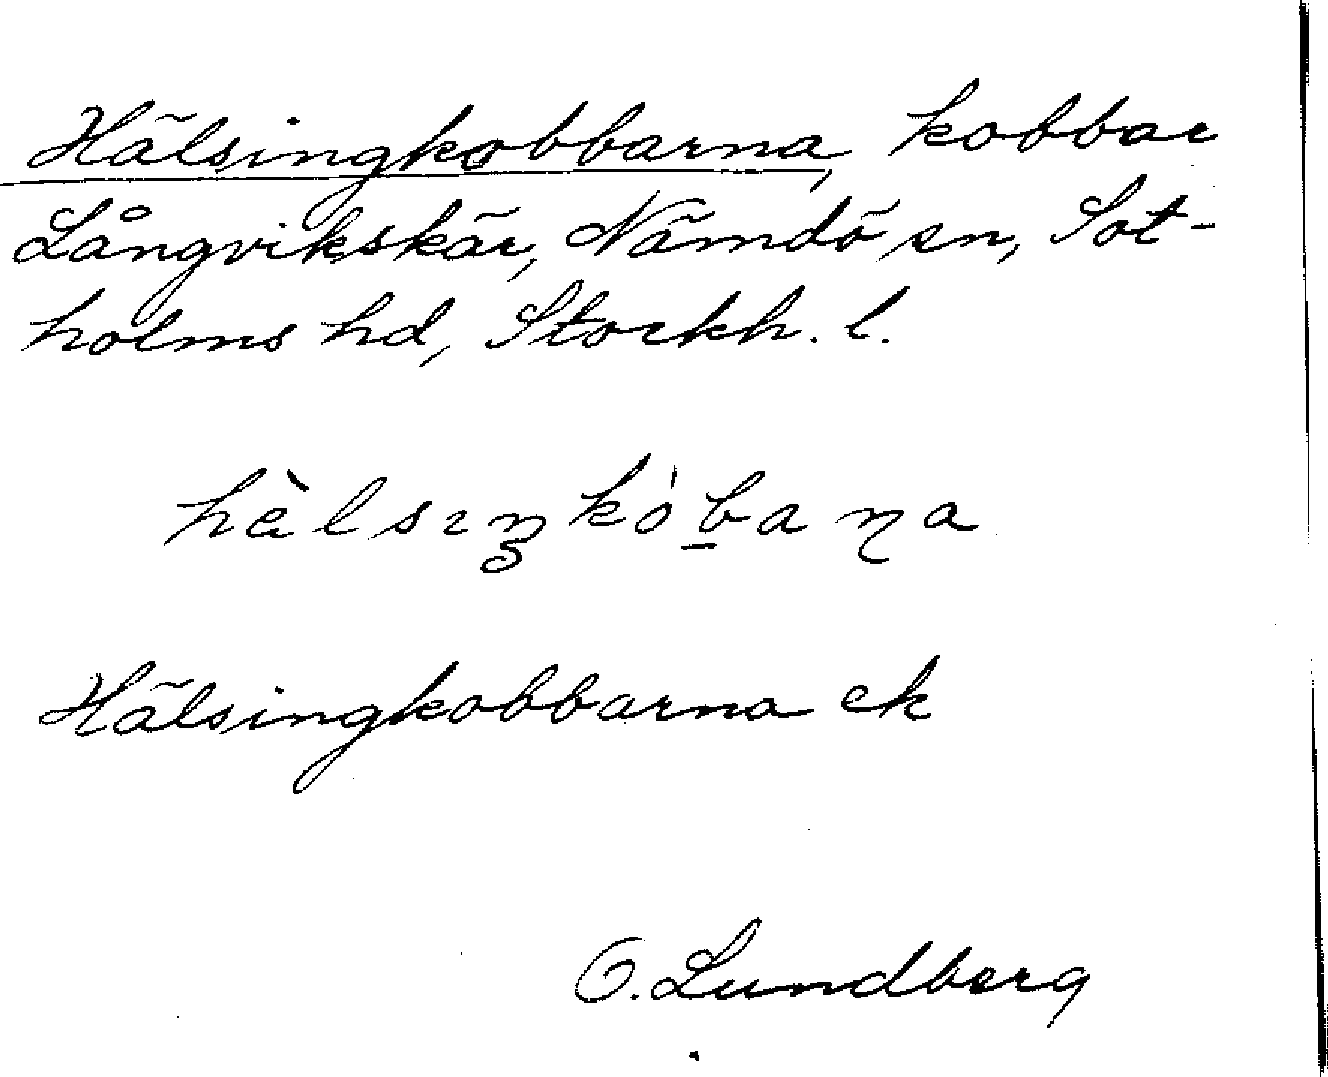 Hälsingkobbarna, kobbar
Långvikskär, Nämdö sn, Sot-
holms hd, Stockh. l.
hàlsıŋkób̲aɳa
Hälsingkobbarna ek
O. Lundberg